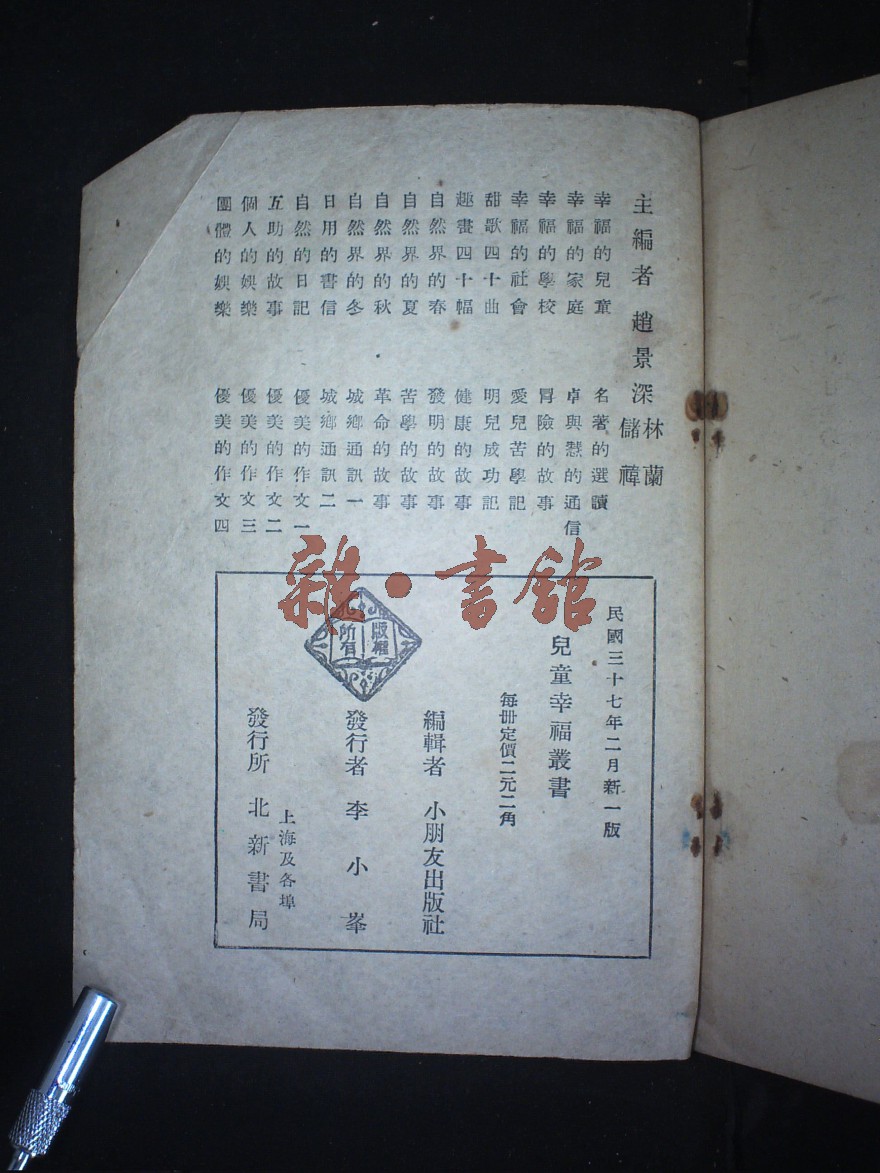 主編者 趙景深 林蘭 儲禕
幸福的兒童
幸福的家庭
幸福的學校
幸福的社會
甜歌四十曲
趣畫四十幅
自然界的春
自然界的夏
自然界的秋
自然界的冬
日用的書信
自然的日記
互助的故事
個人的娛樂
團體的娛樂
名著的選讀
卓與慧的通信
冒險的故事
愛兒苦學記
明兒成功記
健康的故事
發明的故事
苦學的故事
革命的故事
城鄉通訊一
城鄉通訊二
優美的作文一
優美的作文二
優美的作文三
優美的作文四
雜·書館
民國三十七年二月新一版
兒童幸福叢書
每冊定價二元二角
編輯者 小朋友出版社
版權
所有
發行者 李小峯
上海及各埠
發行所 北新書局